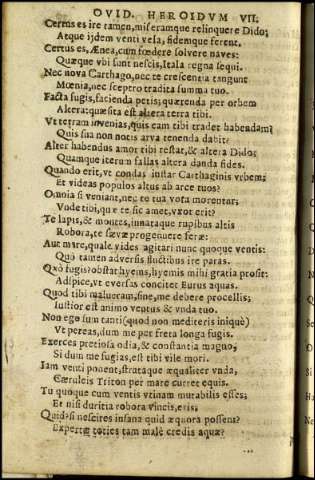 OVID. HEROIDVM VII.
Certus es ire tamen, miseramque relinquere Dido;
Atque ijdem venti vela, fidemque ferent.
Certus es, Ænea, cum fœdere solvere naves:
Quæque vbi sunt nescis, Itala regna sequi.
Nec nova Carthago, nec te crescentia tangunt
Mœnia, nec sceptro tradita summa tuo.
Facta fugis, facienda petis; quærenda per orbem
Altera: quæsita est altera terra tibi.
Vt terram invenias, quis eam tibi tradet habendam?
Quis sua non notis arva tenenda dabit?
Alter habendus amor tibi restat, & altera Dido;
Quamque iterum fallas altera danda fides.
Quando erit, vt condas instar Carthaginis vrbem;
Et videas populos altus ab arce tuos?
Omnia si veniant, nec te tua vota morentur;
Vnde tibi, quæ te sic amet, vxor erit?
Te lapis, & montes, innataque rupibus altis
Robora, te sævæ progenuere feræ:
Aut mare, quale vides agitari nunc quoque ventis:
Quò tamen adversis fluctibus ire paras.
Quò fugis? obstat hyems, hyemis mihi gratia prosit:
Adspice, vt eversas concitet Eurus aquas.
Quod tibi malueram, sine, me debere procellis;
Iustior est animo ventus & vnda tuo.
Non ego sum tanti (quod non mediteris iniquè)
Vt pereas, dum me per freta longa fugis.
Exerces pretiosa odia, & constantia magno,
Si dum me fugias, est tibi vile mori.
Jam venti ponent, strataque æqualiter vnda,
Cæruleis Triton per mare curret equis.
Tu quoque cum ventis vtinam mutabilis esses;
Et nisi duritia robora vincis, eris.
Quid? si nescires insana quid æquora possent?
Expertæ toties tam malè credis aquæ?